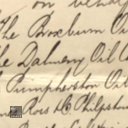 on behalf
The Broxburn Oil
The Dalmeny Oil C
Pumpherston Oil
Ross & C. Philpstoun